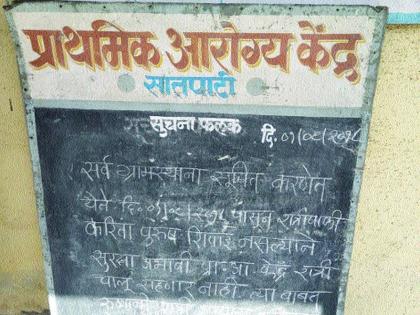 प्राथमिक आरोग्य केंद्र
सातपाटी
सुचना फलक दि. ०१/०८/२०१८
सर्व ग्रामस्थांना सूचित करणेत
येते पासून रात्रपाळी
करिता पुरुष शिपाई नसल्याने
सुरक्षा अभावी प्रा.आ. केंद्र रात्री
चालु राहणार नाही त्या बाबत